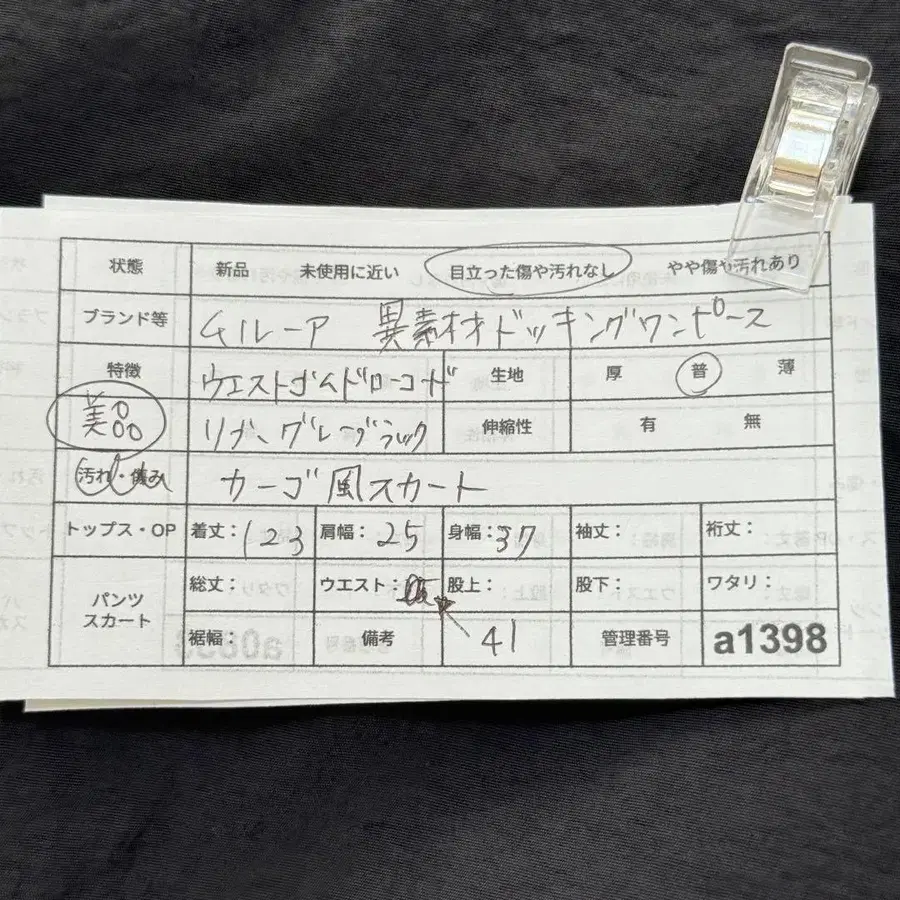 状態 新品 未使用に近い 目立った傷や汚れなし やや傷や汚れあり
ブランド等 チルーア 異素材ドッキングワンピース
特徴 ウエストゴムドローコード 生地 厚 普 薄
美品 リブ、グレーブラック 伸縮性 有 無
汚れ・傷み カーゴ風スカート
トップス・OP 着丈: 123 肩幅: 25 身幅: 37 袖丈: 裄丈:
パンツ スカート 総丈: ウエスト: 股上: 股下: ワタリ:
裾幅: 備考 41 管理番号 a1398